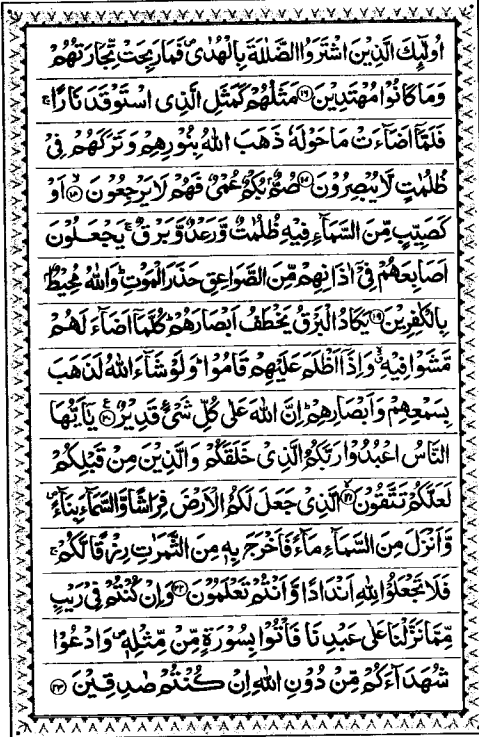 اُولٰٓئِكَ الَّذِيْنَ اشْتَرَوُا الضَّلٰلَةَ بِالْهُدٰى فَمَا رَبِحَتْ تِّجَارَتُهُمْ
وَمَا كَانُوْا مُهْتَدِيْنَ ﴿۱۶﴾ مَثَلُهُمْ كَمَثَلِ الَّذِى اسْتَوْقَدَ نَارًا ۚ
فَلَمَّاۤ اَضَآءَتْ مَا حَوْلَهٗ ذَهَبَ اللّٰهُ بِنُوْرِهِمْ وَتَرَكَهُمْ فِىْ
ظُلُمٰتٍ لَّا يُبْصِرُوْنَ ﴿۱۷﴾ صُمٌّۢ بُكْمٌ عُمْىٌ فَهُمْ لَا يَرْجِعُوْنَ ﴿۱۸﴾ اَوْ
كَصَيِّبٍ مِّنَ السَّمَآءِ فِيْهِ ظُلُمٰتٌ وَّرَعْدٌ وَّبَرْقٌ ۚ يَجْعَلُوْنَ
اَصَابِعَهُمْ فِىْۤ اٰذَانِهِمْ مِّنَ الصَّوَاعِقِ حَذَرَ الْمَوْتِ ؕ وَاللّٰهُ مُحِيْطٌۢ
بِالْكٰفِرِيْنَ ﴿۱۹﴾ يَكَادُ الْبَرْقُ يَخْطَفُ اَبْصَارَهُمْ ؕ كُلَّمَاۤ اَضَآءَ لَهُمْ
مَّشَوْا فِيْهِ ۙ وَاِذَاۤ اَظْلَمَ عَلَيْهِمْ قَامُوْا ؕ وَلَوْ شَآءَ اللّٰهُ لَذَهَبَ
بِسَمْعِهِمْ وَاَبْصَارِهِمْ ؕ اِنَّ اللّٰهَ عَلٰى كُلِّ شَىْءٍ قَدِيْرٌ ﴿۲۰﴾ يٰۤاَيُّهَا
النَّاسُ اعْبُدُوْا رَبَّكُمُ الَّذِىْ خَلَقَكُمْ وَالَّذِيْنَ مِنْ قَبْلِكُمْ
لَعَلَّكُمْ تَتَّقُوْنَ ﴿۲۱﴾ الَّذِىْ جَعَلَ لَكُمُ الْاَرْضَ فِرَاشًا وَّالسَّمَآءَ بِنَآءً ۪
وَّاَنْزَلَ مِنَ السَّمَآءِ مَآءً فَاَخْرَجَ بِهٖ مِنَ الثَّمَرٰتِ رِزْقًا لَّكُمْ ۚ
فَلَا تَجْعَلُوْا لِلّٰهِ اَنْدَادًا وَّاَنْتُمْ تَعْلَمُوْنَ ﴿۲۲﴾ وَاِنْ كُنْتُمْ فِىْ رَيْبٍ
مِّمَّا نَزَّلْنَا عَلٰى عَبْدِنَا فَاْتُوْا بِسُوْرَةٍ مِّنْ مِّثْلِهٖ ۪ وَادْعُوْا
شُهَدَآءَكُمْ مِّنْ دُوْنِ اللّٰهِ اِنْ كُنْتُمْ صٰدِقِيْنَ ﴿۲۳﴾